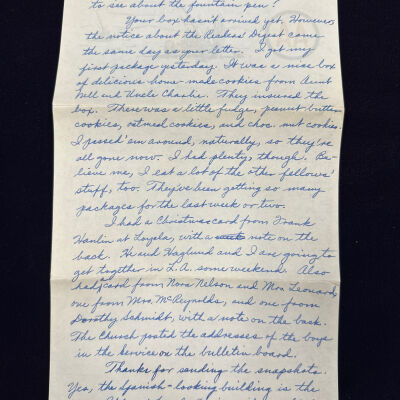 to see about the fountain pen?
Your box hasn't arrived yet. However,
the notice about the Readers' Digest came
the same day as your letter. I got my
first package yesterday. It was a nice box
of delicious home-made cookies from Aunt
Nell and Uncle Charlie. They insured the
box. There was a little fudge, peanut-butter
cookies, oatmeal cookies, and choc. nut cookies.
I passed 'em around, naturally, so they're
all gone now. I had plenty, though. Be-
lieve me, I eat a lot of the other fellows'
stuff, too. They've been getting so many
packages for the last week or two.
I had a Christmas card from Frank
Hanlin at Loyola, with a note on the
back. He and Haglund and I are going to
get together in L.A. some weekend. Also
had card from Nora Nelson and Mrs. Leonard,
one from Mrs. McReynolds, and one from
Dorothy Schmidt, with a note on the back.
The Church posted the addresses of the boys
in the Service on the bulletin board.
Thanks for sending the snapshots.
Yes, the Spanish-looking building is the